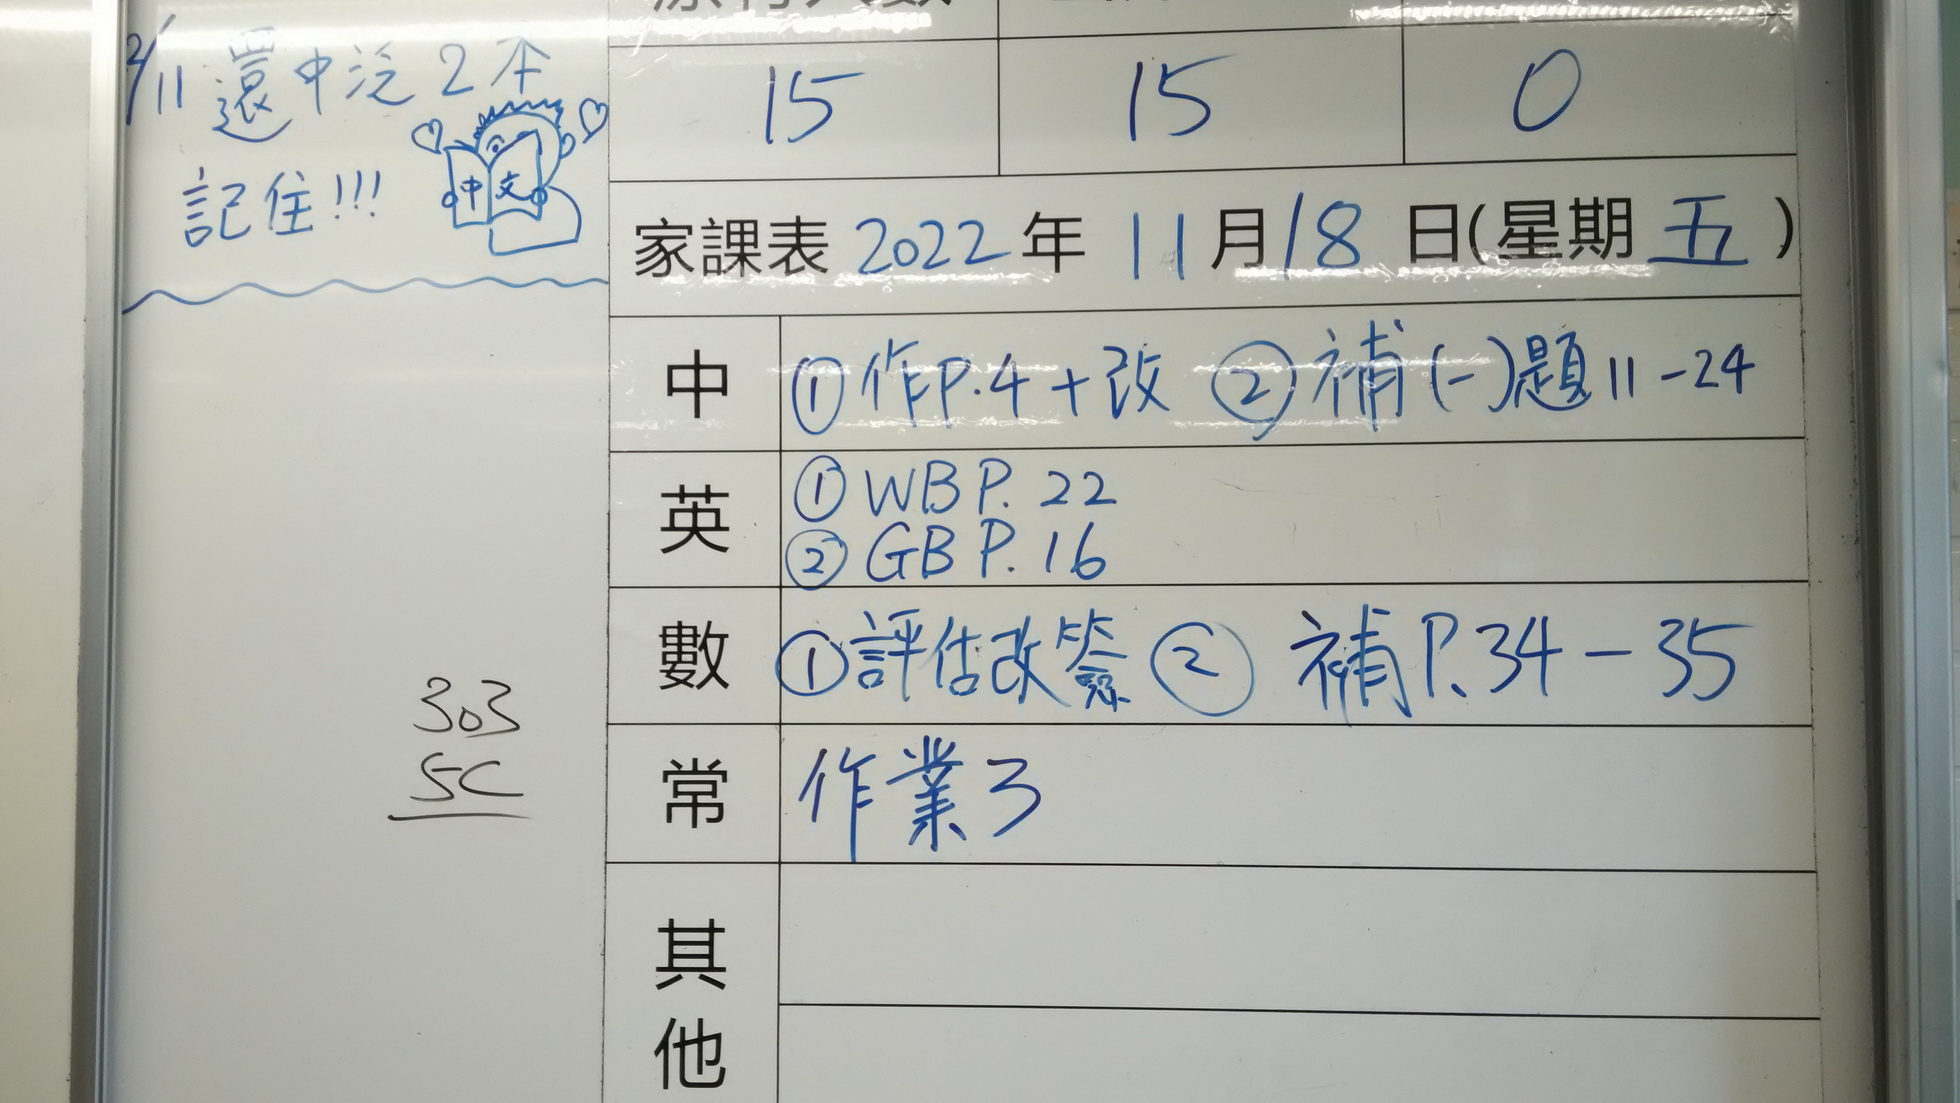 2/11 還中泛2本
記住!!!
中文
15 15 0
家課表 2022 年 11 月 18 日(星期 五 )
中 ①作P.4+改 ②補(一)題11-24
英 ① WB P. 22
② GB P. 16
數 ①評估改簽 ② 補P.34-35
常 作業3
303
5C
其
他